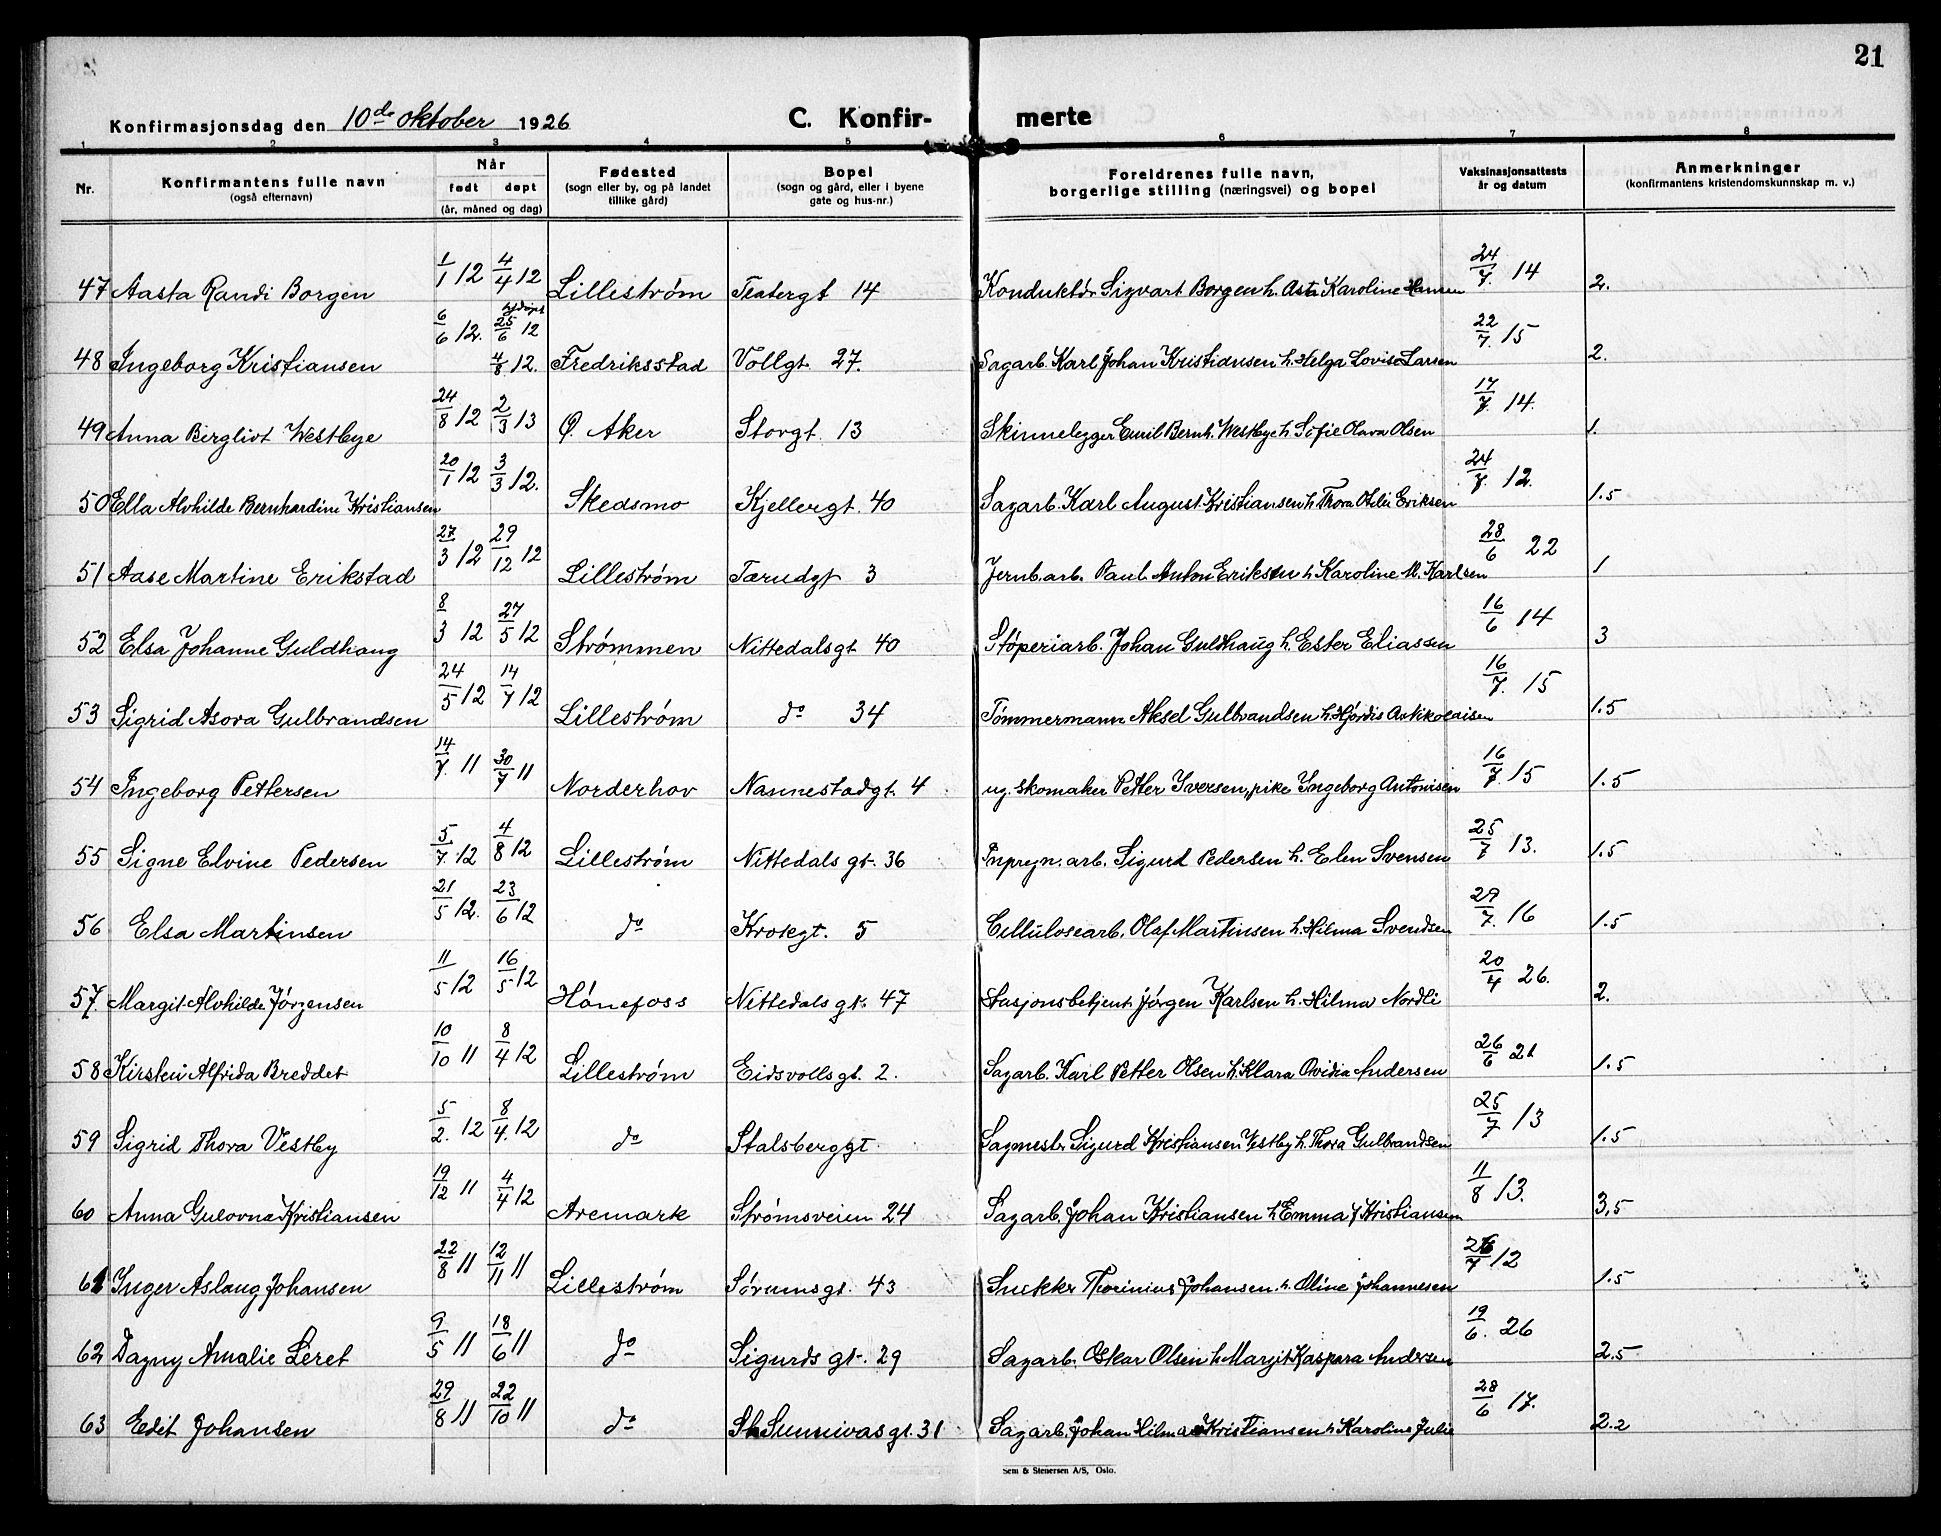 21
Konfirmasjonsdag den 10de oktober 1926 C. Konfir- merte
1 2 3 4 5 6 7 8
Nr. Konfirmantens fulle navn (også efternavn) Når født døpt (år, måned og dag) Fødested (sogn eller by, og på landet tillike gård) Bopel (sogn og gård, eller i byene gate og hus-nr.) Foreldrenes fulle navn, borgerlige stilling (næringsvei) og bopel Vaksinasjonsattests år og datum Anmerkninger (konfirmantens kristendomskunnskap m. v.)
47 Aasta Randi Borgen 1/1 12 4/4 12 Lillestrøm Teatergt 14 Konduktør Sigvart Borgen h. Asta Karoline Hansen 24/7. 14 2.
48 Ingeborg Kristiansen 6/6 12. hjdøpt 25/6 12 4/8. 12. Fredriksstad Vollgt. 27. Sagarb. Karl Johan Kristiansen h. Helga Lovise Larsen 22/7. 15 2.
49 Anna Bergliot Westbye 24/8 12 2/3 13 Ø. Aker Storgt. 13 Skinnelegger Emil Bernh. Westbye h. Sofie Olava Olsen 17/7. 14. 1.
50 Ella Alvhilde Bernhardine Kristiansen 20/1 12 3/3 12. Skedsmo Kjellergt. 40 Sagarb. Karl August Kristiansen h. Thora Otilie Eriksen 24/8. 12. 1.5
51 Aase Martine Erikstad 27/3 12 29/12 12 Lillestrøm Tærudgt 3 Jernb.arb. Paul Anton Eriksen h Karoline M. Karlsen 28/6 22 1
52 Elsa Johanne Guldhaug 8/3 12 27/5 12 Strømmen Nittedalsgt 40 Støperiarb. Johan Guldhaug h. Ester Eliassen 16/6 14 3
53 Sigrid Asora Gulbrandsen 24/5 12 14/7 12 Lillestrøm do 34 Tømmermann Aksel Gulbrandsen h. Hjørdis A. Nikolaisen 16/7. 15 1.5
54 Ingeborg Pettersen 14/7. 11 30/7 11 Norderhov Nannestadgt. 4 ug. skomaker Petter Iversen, pike Ingeborg Antonisen 16/7. 15 1.5
55 Signe Elvine Pedersen 5/7. 12 4/8 12 Lillestrøm Nittedals gt. 36 Inpregn. arb. Sigurd Pedersen h. Elen Svensen 25/7 13. 1.5
56 Elsa Martinsen 21/5 12. 23/6 12 do Krokgt. 5 Cellulosearb. Olaf Martinsen h. Hilma Svendsen 27/7. 16 1.5
57. Margit Alvhilde Jörgensen 11/5 12 16/5 12 Hönefoss Nittedals gt. 47 Stasjonsbetjent Jörgen Karlsen h. Hilma Nordli 20/4 26. 2.
58 Kirsten Alfrida Breddet 10/10 11 8/4 12 Lillestrøm Eidsvolls gt. 2. Sagarb. Karl Petter Olsen h. Klara Ovidia Andersen 26/6 21 1.5
59 Sigrid Thora Vestby 5/2. 12 8/4. 12 do Stalsberggt. Sagmestr. Sigurd Kristiansen Vestby h. Thora Gulbrandsen 25/7 13 1.5
60 Anna Gulovna Kristiansen 19/12 11 4/4 12 Aremark Strømsveien 24 Sagarb. Johan Kristiansen h Emma J Kristiansen 11/8 13. 3,5
61 Inger Aslaug Johansen 22/8 11 12/11 11 Lillestrøm Sørumsgt. 43 Snekker Thorinius Johansen. h. Oline Johannesen 26/7 12 1.5
62 Dagny Amalie Leret 9/5 11 18/6 11 do Sigurds gt. 29 Sagarb. Oskar Olsen h Margit Kaspara Andersen 19/6. 26 2.5
63 Edit Johansen 29/8 11 22/10 11 do St Sunnivas gt. 31 Sagarb. Johan Hilmar Kristiansen h Karoline Julie 28/6 17. 2.2
Sem & Stenersen A/S, Oslo.